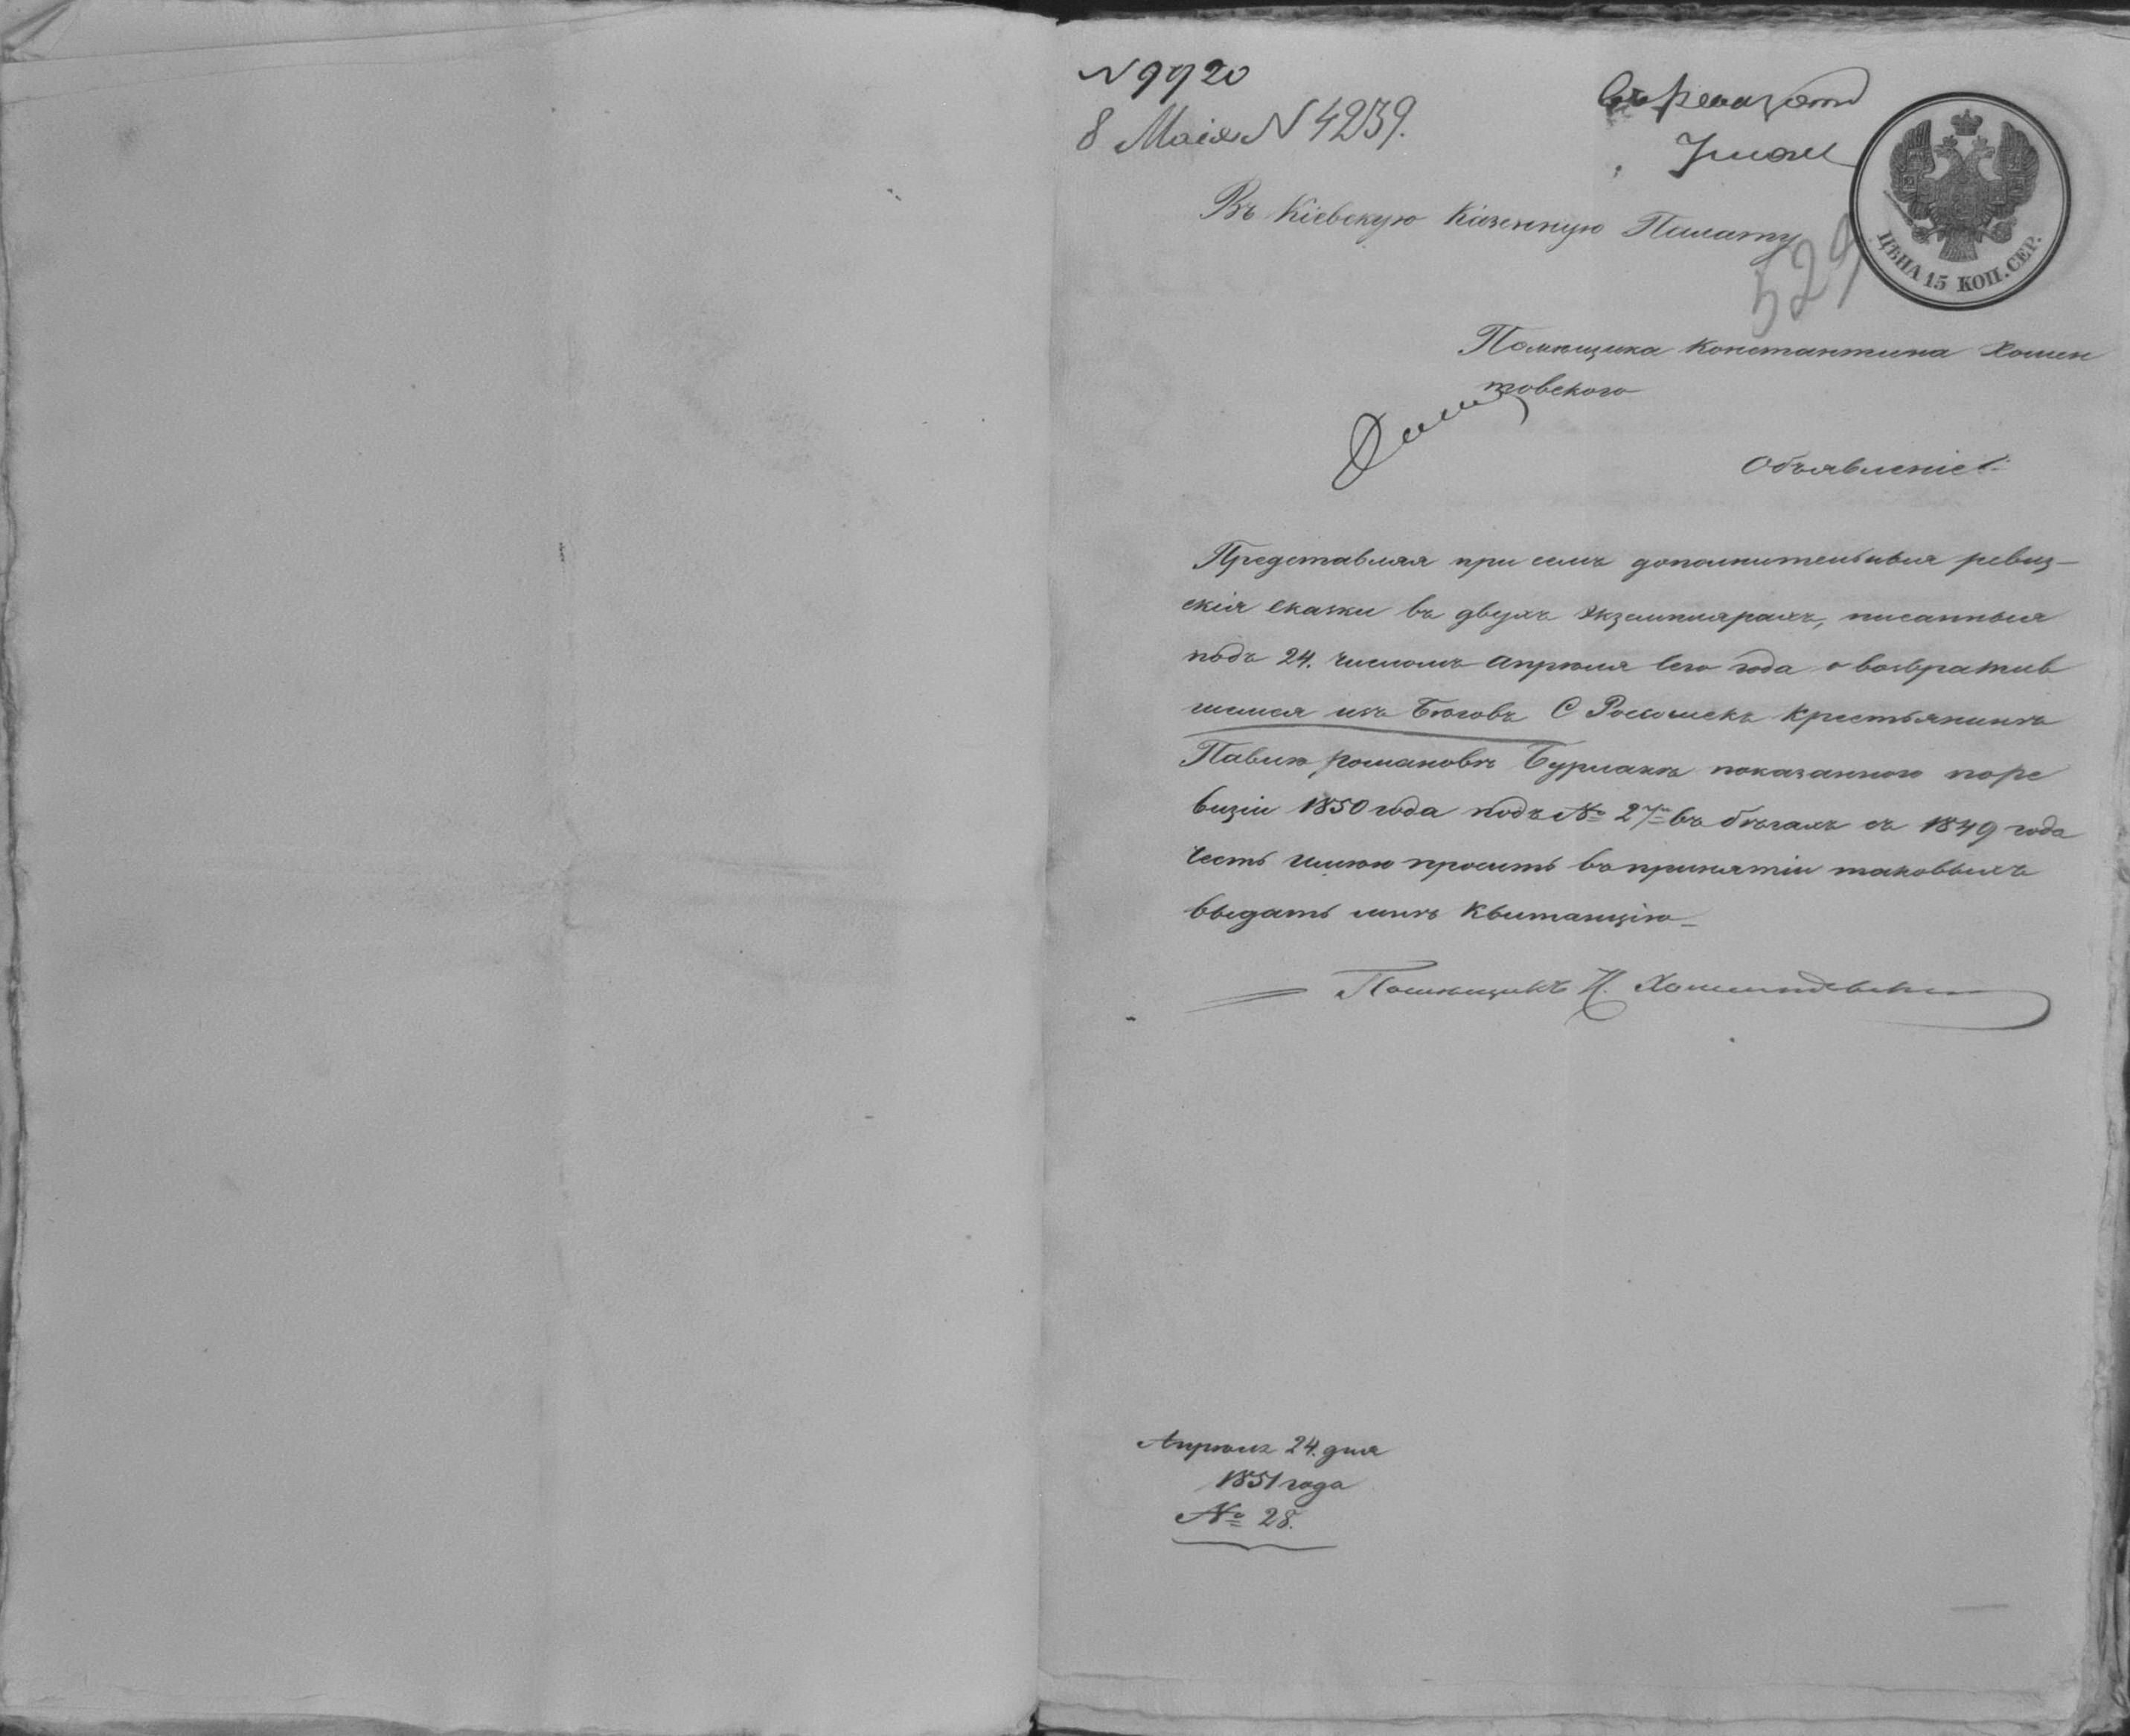 N 9920
8 Маія N 4239.
Въ Кіевскую Казенную Палату
529
ЦѢНА 15 КОП. СЕР.
Помѣщика Константина Хомен
товского
Объявленіе
Представляя при семъ дополнительныя ревиз-
скія сказки въ двухъ экземплярахъ, писанныя
подъ 24. числомъ Апрѣля сего года о возвратив
шемся изъ Бѣговъ С Росошекъ Крестьянинѣ
Павлѣ Романовѣ Бурлакѣ показанного поре
визіи 1850 года подъ № 27м въ бѣгахъ съ 1849 года
Честь имѣю просить въ принятіи таковыхъ
выдать мнѣ Квитанцію
Помѣщикъ К. Хоментовский
Апрѣля 24. дня
1851 года
№ 28.